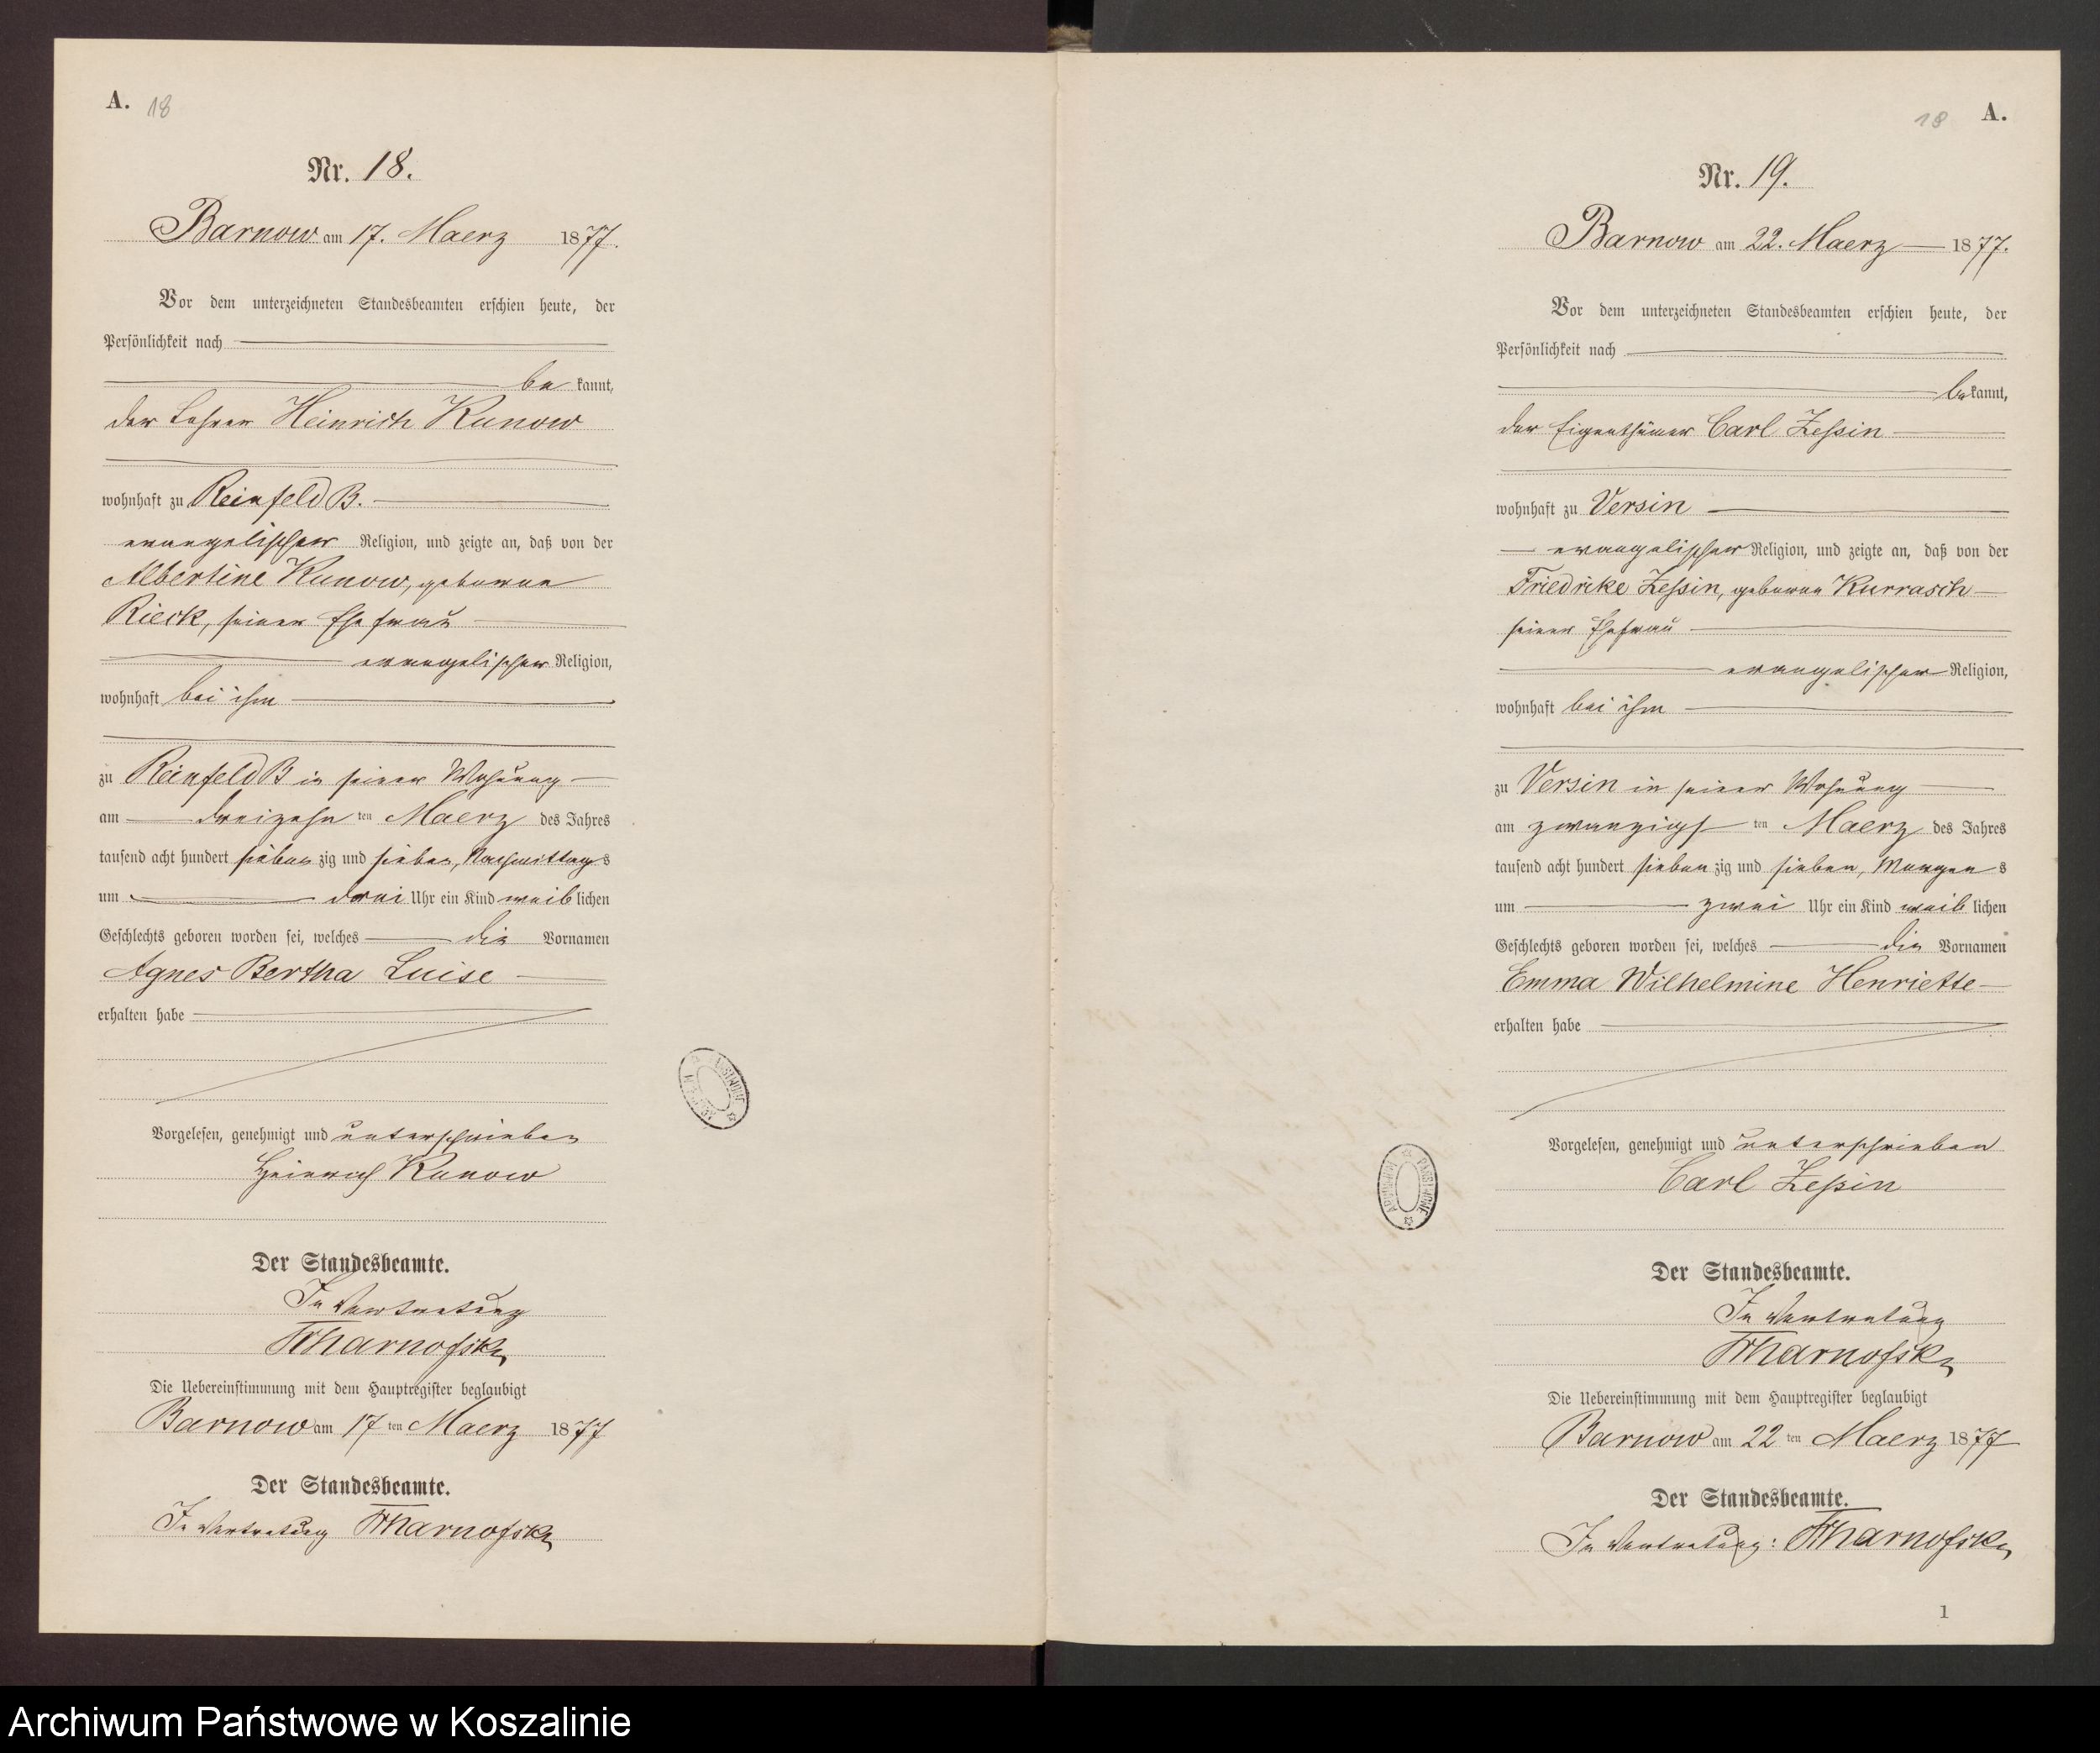 A. 18
Nr. 18.
Barnow am 17. Maerz 1877.
Vor dem unterzeichneten Standesbeamten erschien heute, der
Persönlichkeit nach
be kannt,
der Lehrer Heinrich Kunow
wohnhaft zu Reinfeld B.
evangelischer Religion, und zeigte an, daß von der
Albertine Kunow, geborene
Rieck, seiner Ehefrau
evangelischer Religion,
wohnhaft bei ihm
zu Reinfeld B in seiner Wohnung
am dreizehn ten Maerz des Jahres
tausend acht hundert sieben zig und sieben, Nachmittag s
um drei Uhr ein Kind weib lichen
Geschlechts geboren worden sei, welches die Vornamen
Agnes Bertha Luise
erhalten habe
Vorgelesen, genehmigt und unterschrieben
Heinrich Kunow
Der Standesbeamte.
In Vertretung
Die Uebereinstimmung mit dem Hauptregister beglaubigt
Barnow am 17 ten Maerz 1877
Der Standesbeamte.
In Vertretung
18 A.
Nr. 19.
Barnow am 22. Maerz 1877.
Vor dem unterzeichneten Standesbeamten erschien heute, der
Persönlichkeit nach
be kannt,
der Eigenthümer Carl Zessin
wohnhaft zu Versin
evangelischer Religion, und zeigte an, daß von der
Friedrike Zessin, geborene Kurrasch
seiner Ehefrau
evangelischer Religion,
wohnhaft bei ihm
zu Versin in seiner Wohnung
am zwanzigs ten Maerz des Jahres
tausend acht hundert sieben zig und sieben, Morgen s
um zwei Uhr ein Kind weib lichen
Geschlechts geboren worden sei, welches die Vornamen
Emma Wilhelmine Henriette
erhalten habe
Vorgelesen, genehmigt und unterschrieben
Carl Zessin
Der Standesbeamte.
In Vertretung
Die Uebereinstimmung mit dem Hauptregister beglaubigt
Barnow am 22 ten Maerz 1877
Der Standesbeamte.
In Vertretung:
1
Archiwum Państwowe w Koszalinie